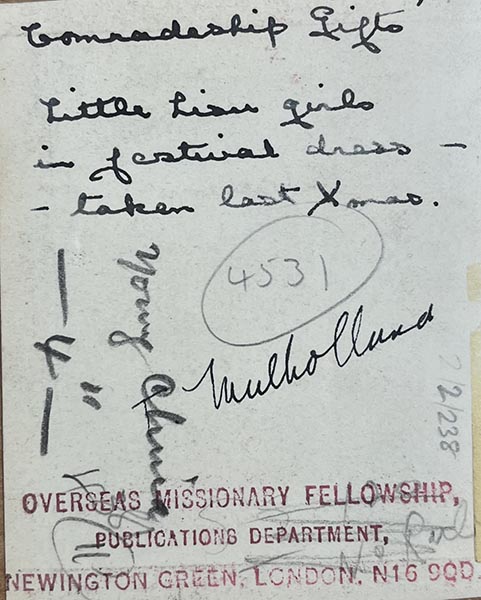 Comradeship Gifts
Little Lisu girls
in festival dress –
– taken last Xmas.
4531
Mulholland
Young China
4"
2/2/238
OVERSEAS MISSIONARY FELLOWSHIP,
PUBLICATIONS DEPARTMENT,
NEWINGTON GREEN, LONDON, N16 9QD.